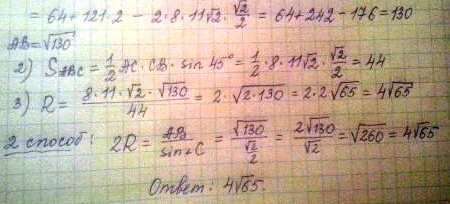 = 64 + 121·2 − 2·8·11√2·√2/2 = 64 + 242 − 176 = 130
AB = √130
2) S_ABC = 1/2 AC·CB·sin 45° = 1/2·8·11√2·√2/2 = 44
3) R = (8·11·√2·√130)/44 = 2·√(2·130) = 2·2√65 = 4√65
2 способ: 2R = AB/sin∠C = √130/(√2/2) = 2√130/√2 = √260 = 4√65
Ответ: 4√65.